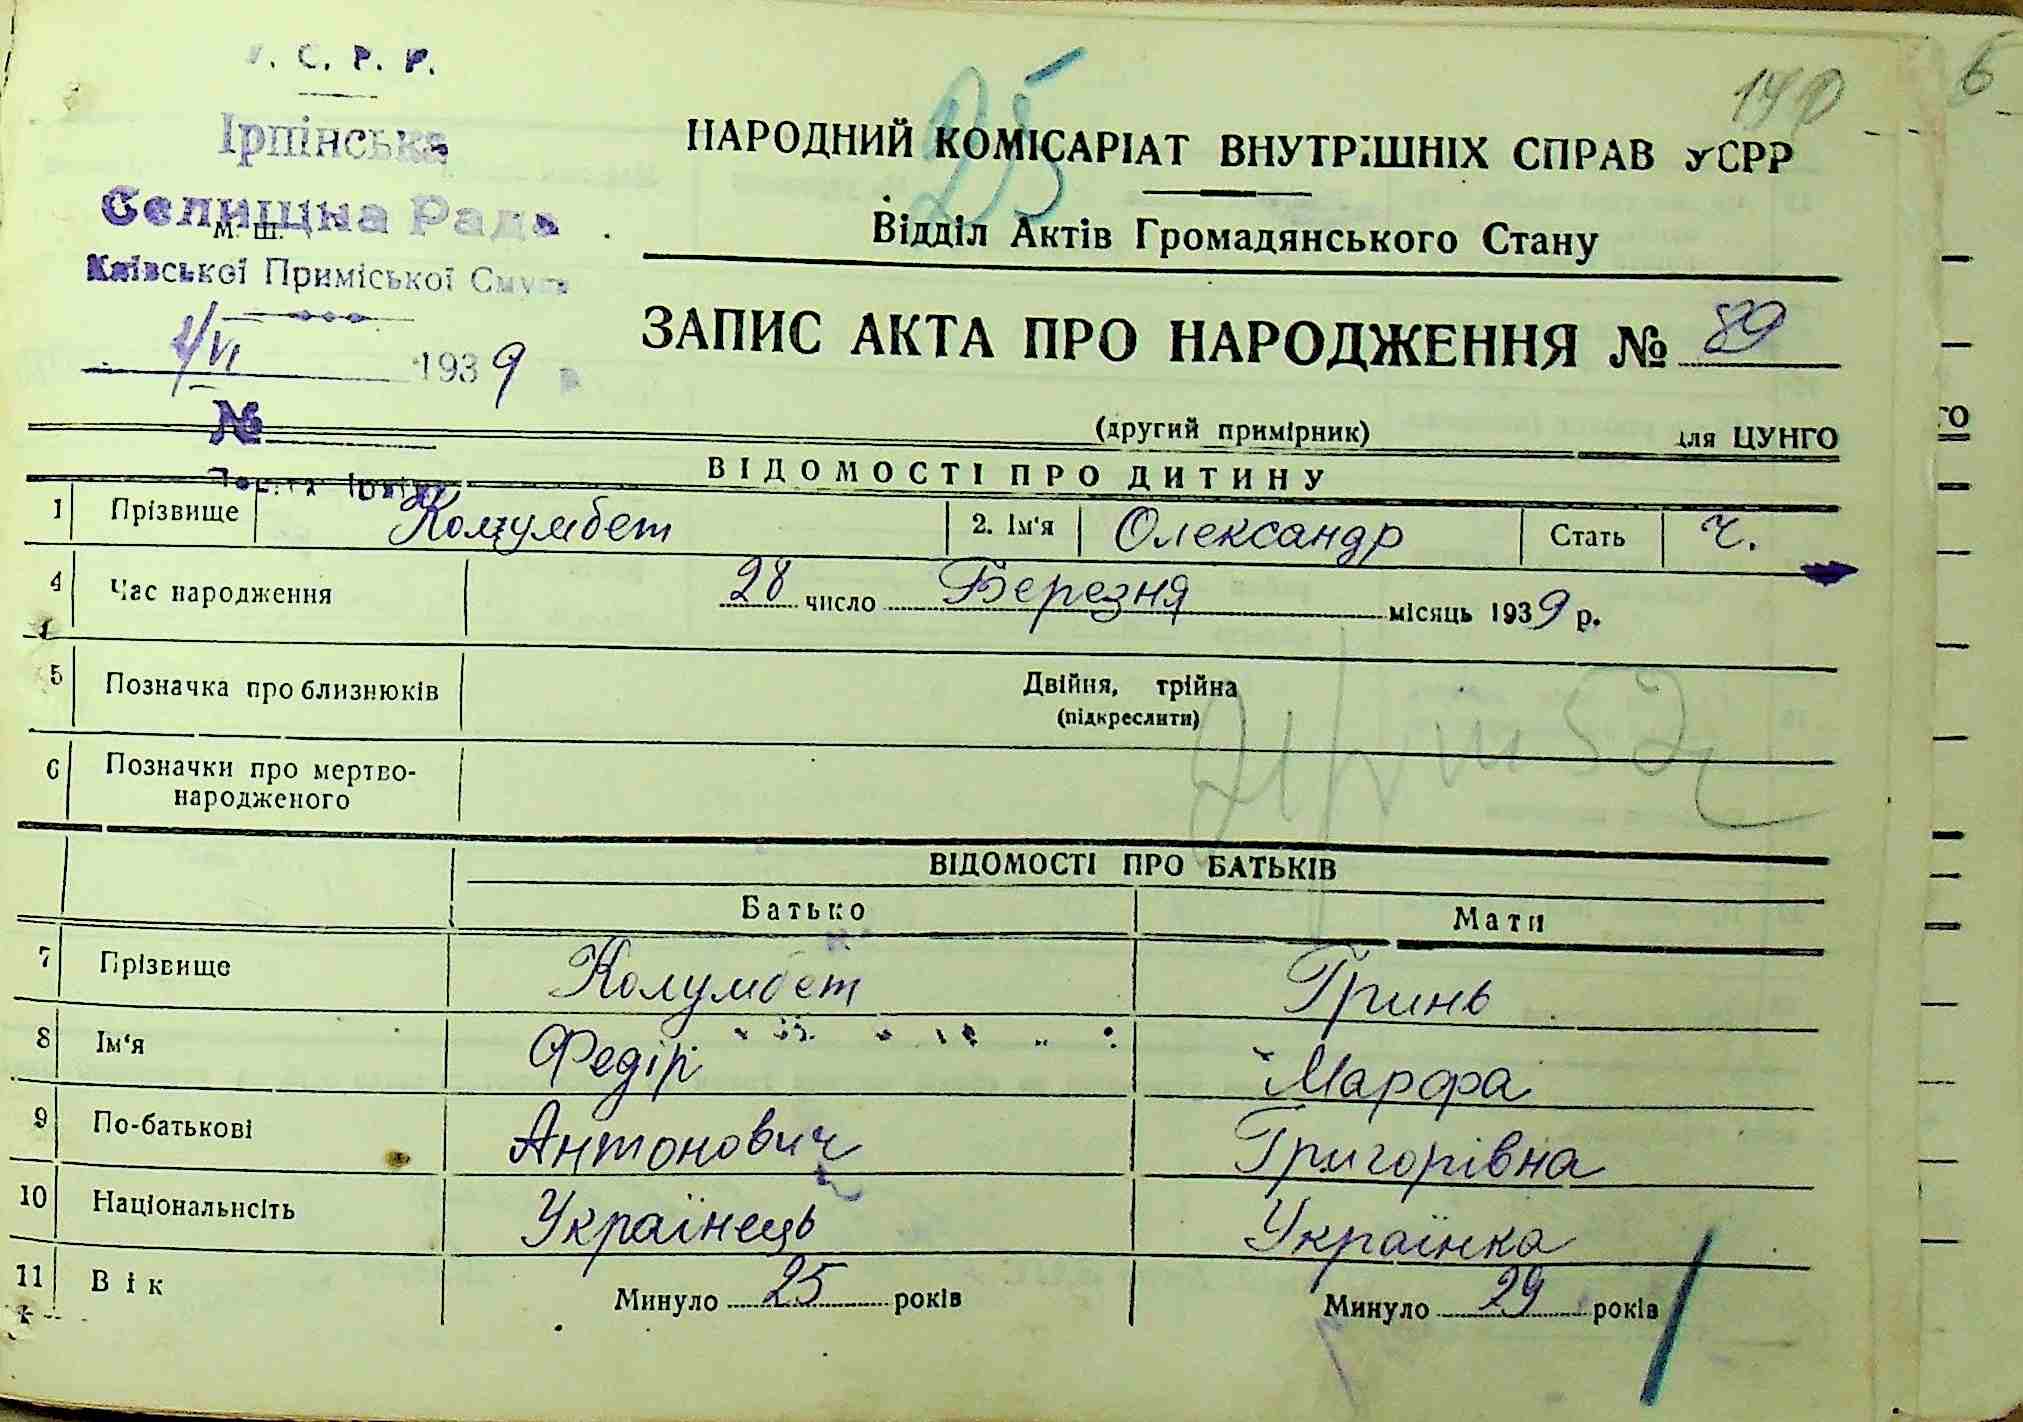 У. С. Р. Р.
Ірпінська
Селищна Рада
м. ш.
Київської Приміської Смуги
1/VI 1939 р
№
Пошта Ірпінь
25
170
6
НАРОДНИЙ КОМІСАРІАТ ВНУТРІШНІХ СПРАВ УСРР
Відділ Актів Громадянського Стану
ЗАПИС АКТА ПРО НАРОДЖЕННЯ № 89
(другий примірник) для ЦУНГО
ВІДОМОСТІ ПРО ДИТИНУ
1 Прізвище Колумбет 2. Ім'я Олександр Стать Ч.
4 Час народження 28 число Березня місяць 1939 р.
5 Позначка про близнюків Двійня, трійна
(підкреслити)
6 Позначки про мертво-
народженого
ВІДОМОСТІ ПРО БАТЬКІВ
Батько Мати
7 Прізвище Колумбет Гринь
8 Ім'я Федір Марфа
9 По-батькові Антонович Григорівна
10 Національнсіть Українець Українка
11 Вік Минуло 25 років Минуло 29 років